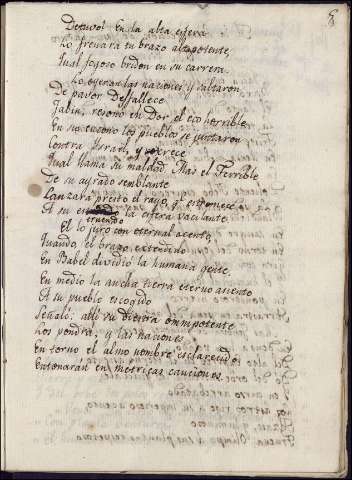 Detuvo! En la alta esfera
Lo frenará tu brazo altipotente,
Qual fogoso bridon en su carrera.
Lo oyeron las naciones, y saltaron
De pavor. Desfallece
Jabin, resonó en Dor el eco horrible
En su encono los pueblos se juntaron
Contra Israel, y crece
Qual llama su maldad. Mas el Terrible
De su ayrado semblante
Lanzará presto el rayo, y estremece
A su
truendo la esfera vacilante
El lo juró con eternal acento,
Quando, el brazo extendido
En Babel dividió la humana gente,
En medio la ancha tierra eterno asiento
A su pueblo escogido
Señaló: allí su diestra omnipotente
Los pondrá, y las naciones
En torno el almo nombre esclarecido
Entonarán en metricas canciones.